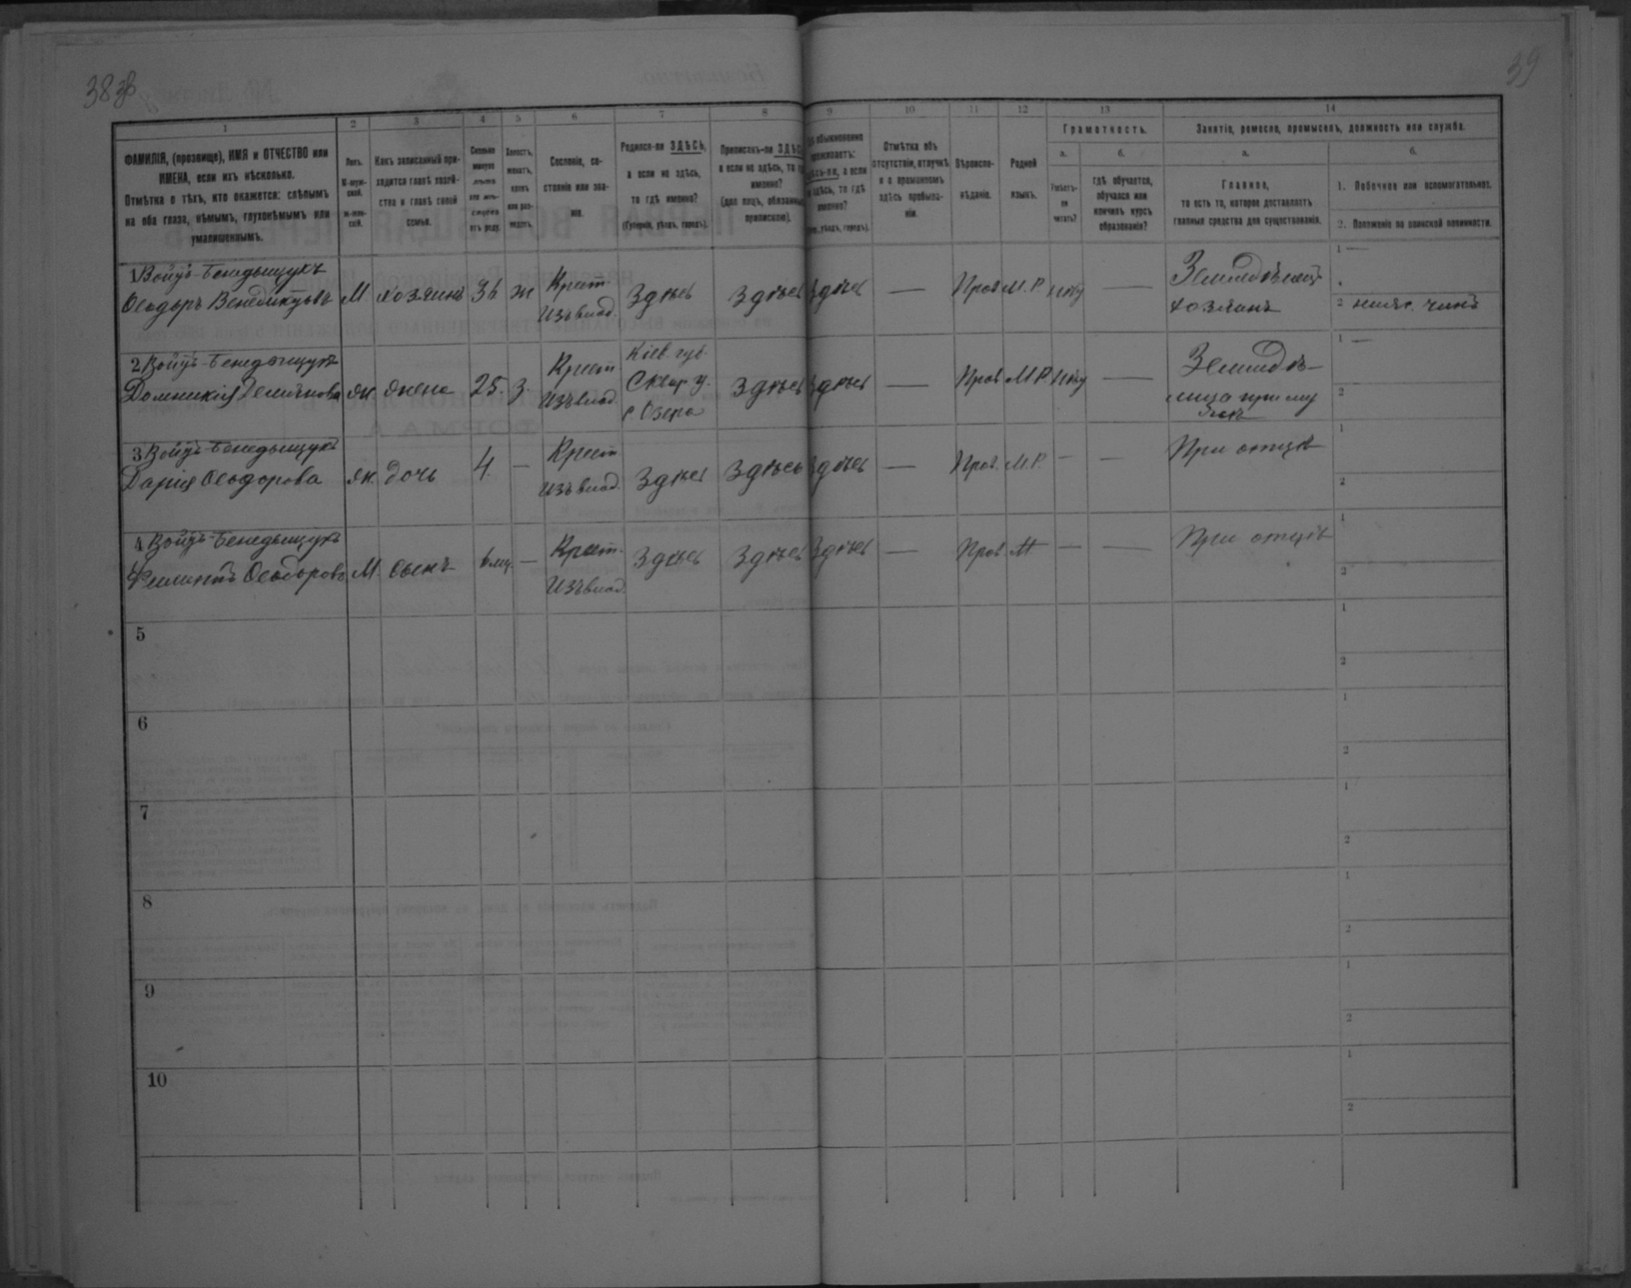 38
39
1 2 3 4 5 6 7 8 9 10 11 12 13 14
ФАМИЛІЯ, (прозвище), ИМЯ и ОТЧЕСТВО или
ИМЕНА, если ихъ нѣсколько.
Отмѣтка о тѣхъ, кто окажется: слѣпымъ
на оба глаза, нѣмымъ, глухонѣмымъ или
умалишеннымъ.
Полъ.
М-муж-
ской.
Ж-жен-
скій.
Какъ записанный при-
ходится главѣ хозяй-
ства и главѣ своей
семьи.
Сколько
минуло
лѣтъ
или мѣ-
сяцевъ
отъ роду.
Холостъ,
женатъ,
вдовъ
или раз-
веденъ.
Сословіе, со-
стояніе или зва-
ніе.
Родился-ли ЗДѢСЬ,
а если не здѣсь,
то гдѣ именно?
(Губернія, уѣздъ, городъ).
Приписанъ-ли ЗДѢСЬ
а если не здѣсь, то
именно?
(для лицъ, обязанныхъ
припискою).
обыкновенно
проживаетъ:
а если
здѣсь, то гдѣ
именно?
уѣздъ, городъ).
Отмѣтка объ
отсутствіи, отлучкѣ
и о временномъ
здѣсь пребыва-
ніи.
Вѣроиспо-
вѣданіе.
Родной
языкъ.
Грамотность.
а.
Умѣетъ-
ли
читать?
б.
гдѣ обучается,
обучался или
кончилъ курсъ
образованія?
Занятіе, ремесло, промыселъ, должность или служба.
а.
Главное,
то есть то, которое доставляетъ
главныя средства для существованія.
б.
1. Побочное или вспомогательное.
2. Положеніе по воинской повинности.
1 Войцъ-Бенедыщукъ
Ѳеодоръ Венедиктовъ М хозяинъ 36 ж Крест. изъ влад. Здѣсь Здѣсь Здѣсь — Прав. М.Р. нѣтъ — Земледѣлецъ хозяинъ
1 —
2 нижн. чинъ
2 Войцъ-Бенедыщукъ
Домникія ж. жена 25 з. Крест. изъ влад. Кіев. губ. Сквир. у. с Озера Здѣсь Здѣсь — Прав. М.Р. нѣтъ — Земледѣ-
лица при му
1 —
2
3 Войцъ-Бенедыщукъ
Дарія Ѳеодорова ж. дочь 4 — Крест. изъ влад. Здѣсь Здѣсь Здѣсь — Прав. М.Р. — — При отцѣ
1
2
4 Войцъ-Бенедыщукъ
Ѳеодоровъ М. сынъ 6 мц. — Крест. изъ влад. Здѣсь Здѣсь Здѣсь — Прав. М — — При отцѣ
1
2
5
1
2
6
1
2
7
1
2
8
1
2
9
1
2
10
1
2